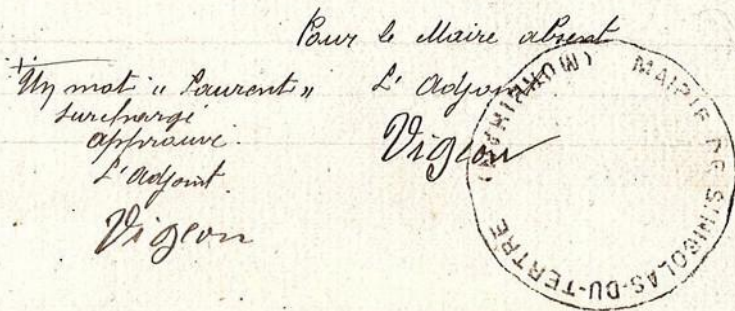 Pour le Maire absent
L'Adjoint
Vigeon
Un mot "Laurent"
surchargé
approuvé.
L'adjoint.
Vigeon
MAIRIE DE ST NICOLAS-DU-TERTRE (MORBIHAN)